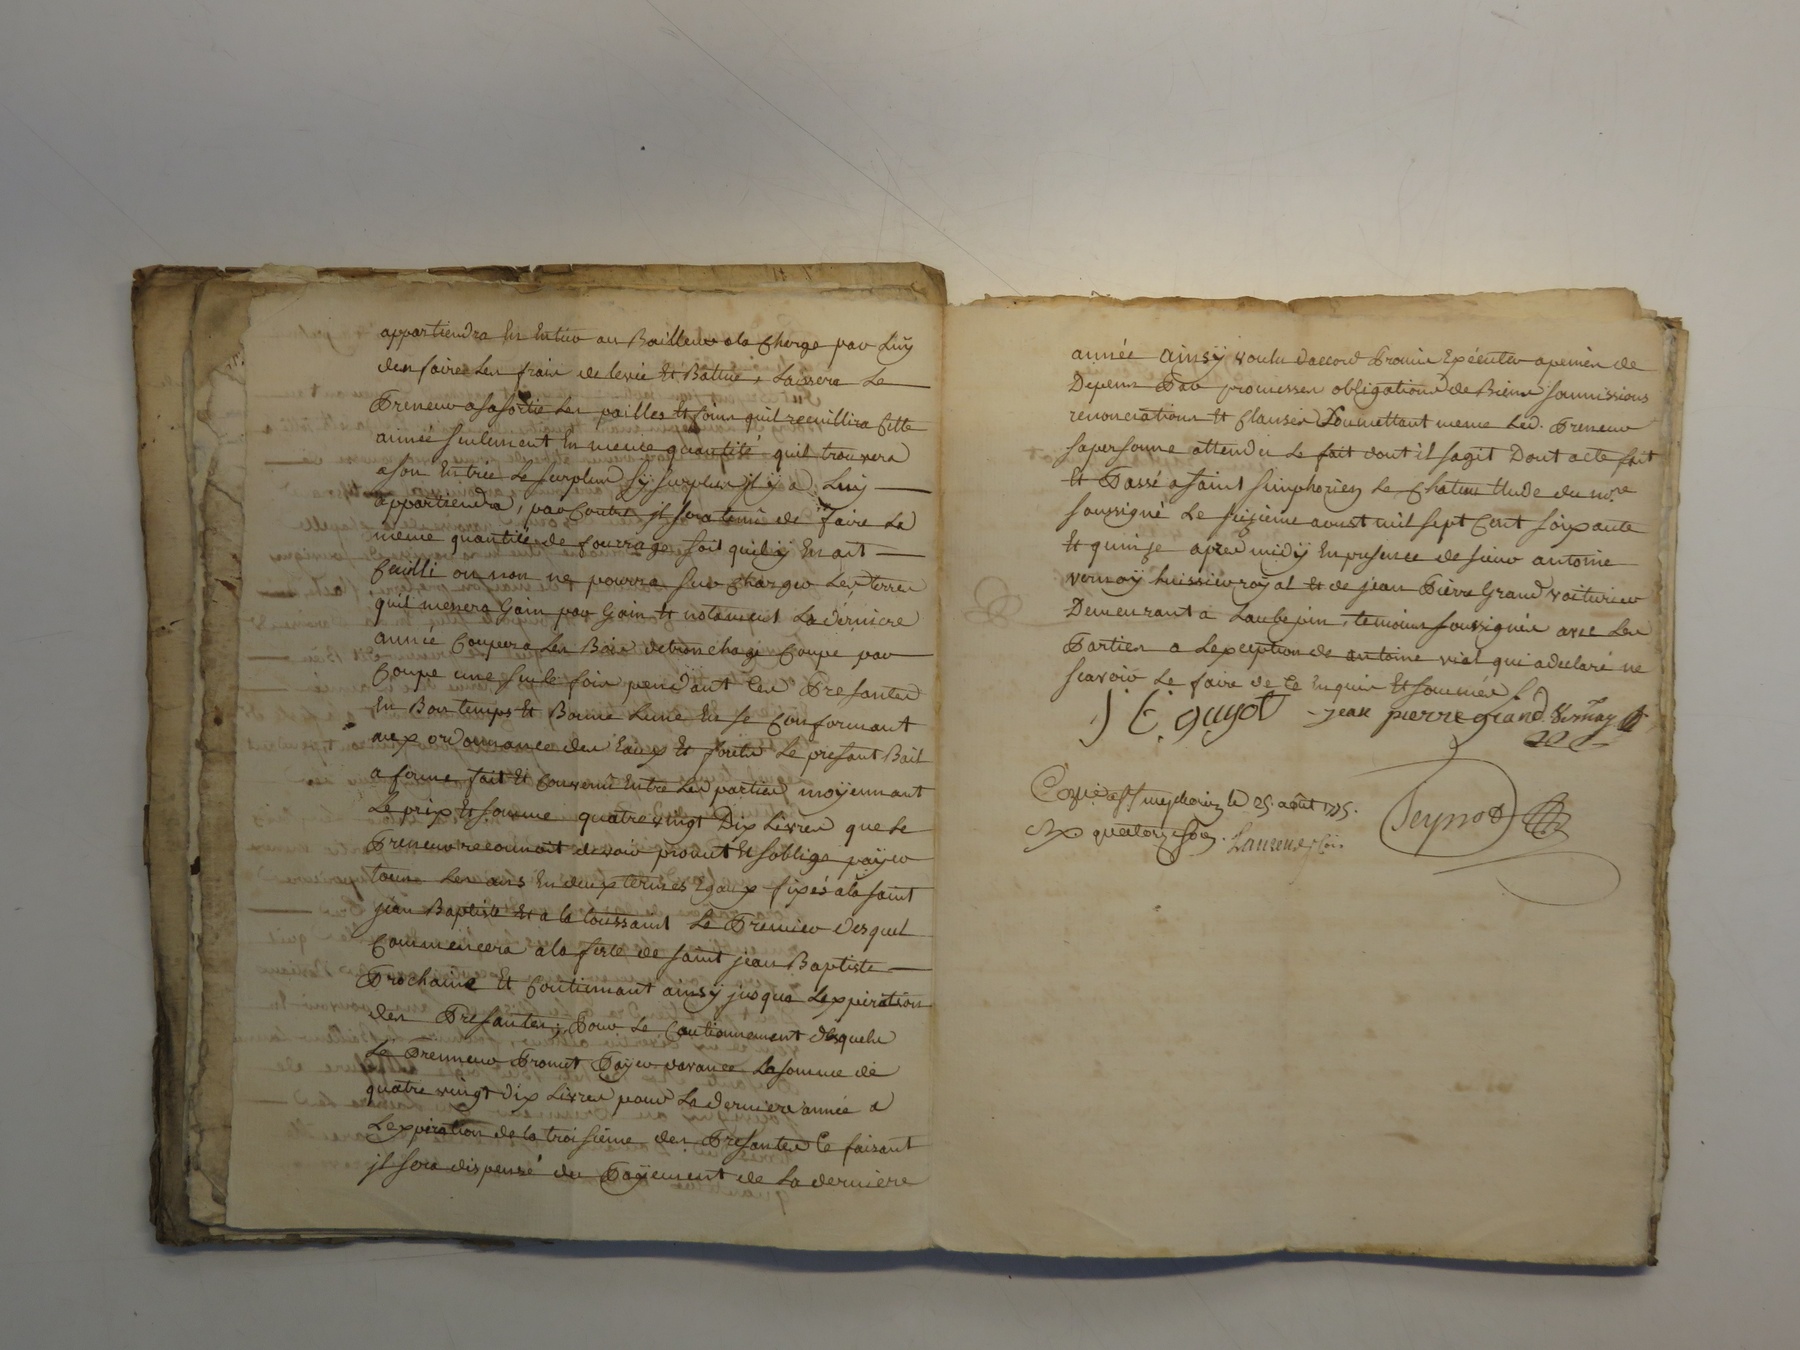 appartiendra En Entier au Bailleur a la Charge par Luy
den faire Les frais de levée Et Battue, Laissera Le
Preneur a sa sortie Les pailles Et foins quil recuillira Cette
année seulement En meme quantité quil trouvera
a son Entrée Le surplus sy surplus jl y a Luy
appartiendra, par Contre jl sera tenu de faire La
meme quantité de fourrage soit quil y En ait
Cuilli ou non ne pourra sur Charger Les terres
quil mesera Gain par Gain Et notament La derniere
année Coupera Les Bois debronchage Coupe par
Coupe une seule fois pendant Les Presantes
En Bon temps Et Bonne Lune En se Conformant
aux ordonnances des Eaux Et forets Le presant Bail
a ferme fait Et Convenu Entre Les parties moÿennant
Le prix Et somme quatre vingt Dix Livres que Le
Preneur reconnoit devoir promet Et soblige paÿer
tous Les ans En deux termes Egaux fixés a la saint
jean Baptiste Et a la toussaint Le Premier desquel
Commencera a la feste de saint jean Baptiste
Prochaine Et Continuant ainsy jusqua Lexpiration
des Presantes, Pour Le Cautionnement desquels
Le Prenneur Promet Paÿer davance La somme de
quatre vingt dix Livres pour La derniere année a
Lexpiration de la troisieme des Presantes Ce faisant
jl sera dispensé du Paÿement de La derniere
année ainsÿ voulu daccord Promis Executer a peines de
Depens Par promesses obligations de Biens soumissions
renonciations Et Clauses Soumettant meme Led. Preneur
sa personne attendu Le fait dont il sagit Dont acte fait
Et Passé a saint simphorien Le Chateau Etude du nore
soussigné Le seizieme aoust mil sept Cent soixante
Et quinze apres midÿ En presence de sieur antoine
vernaÿ huissier roÿal Et de jean Pierre Grand voiturier
Demeurant a Laubepin, temoins soussignés avec Les
Parties a Lexception de antoine vial qui a declaré ne
scavoir Le faire de Ce Enquis Et sommé
Guyot jean pierre grand Vernay
Cone a St simphorien le 25 août 1775.
Rx quatorze sols. Laurens
Peynot